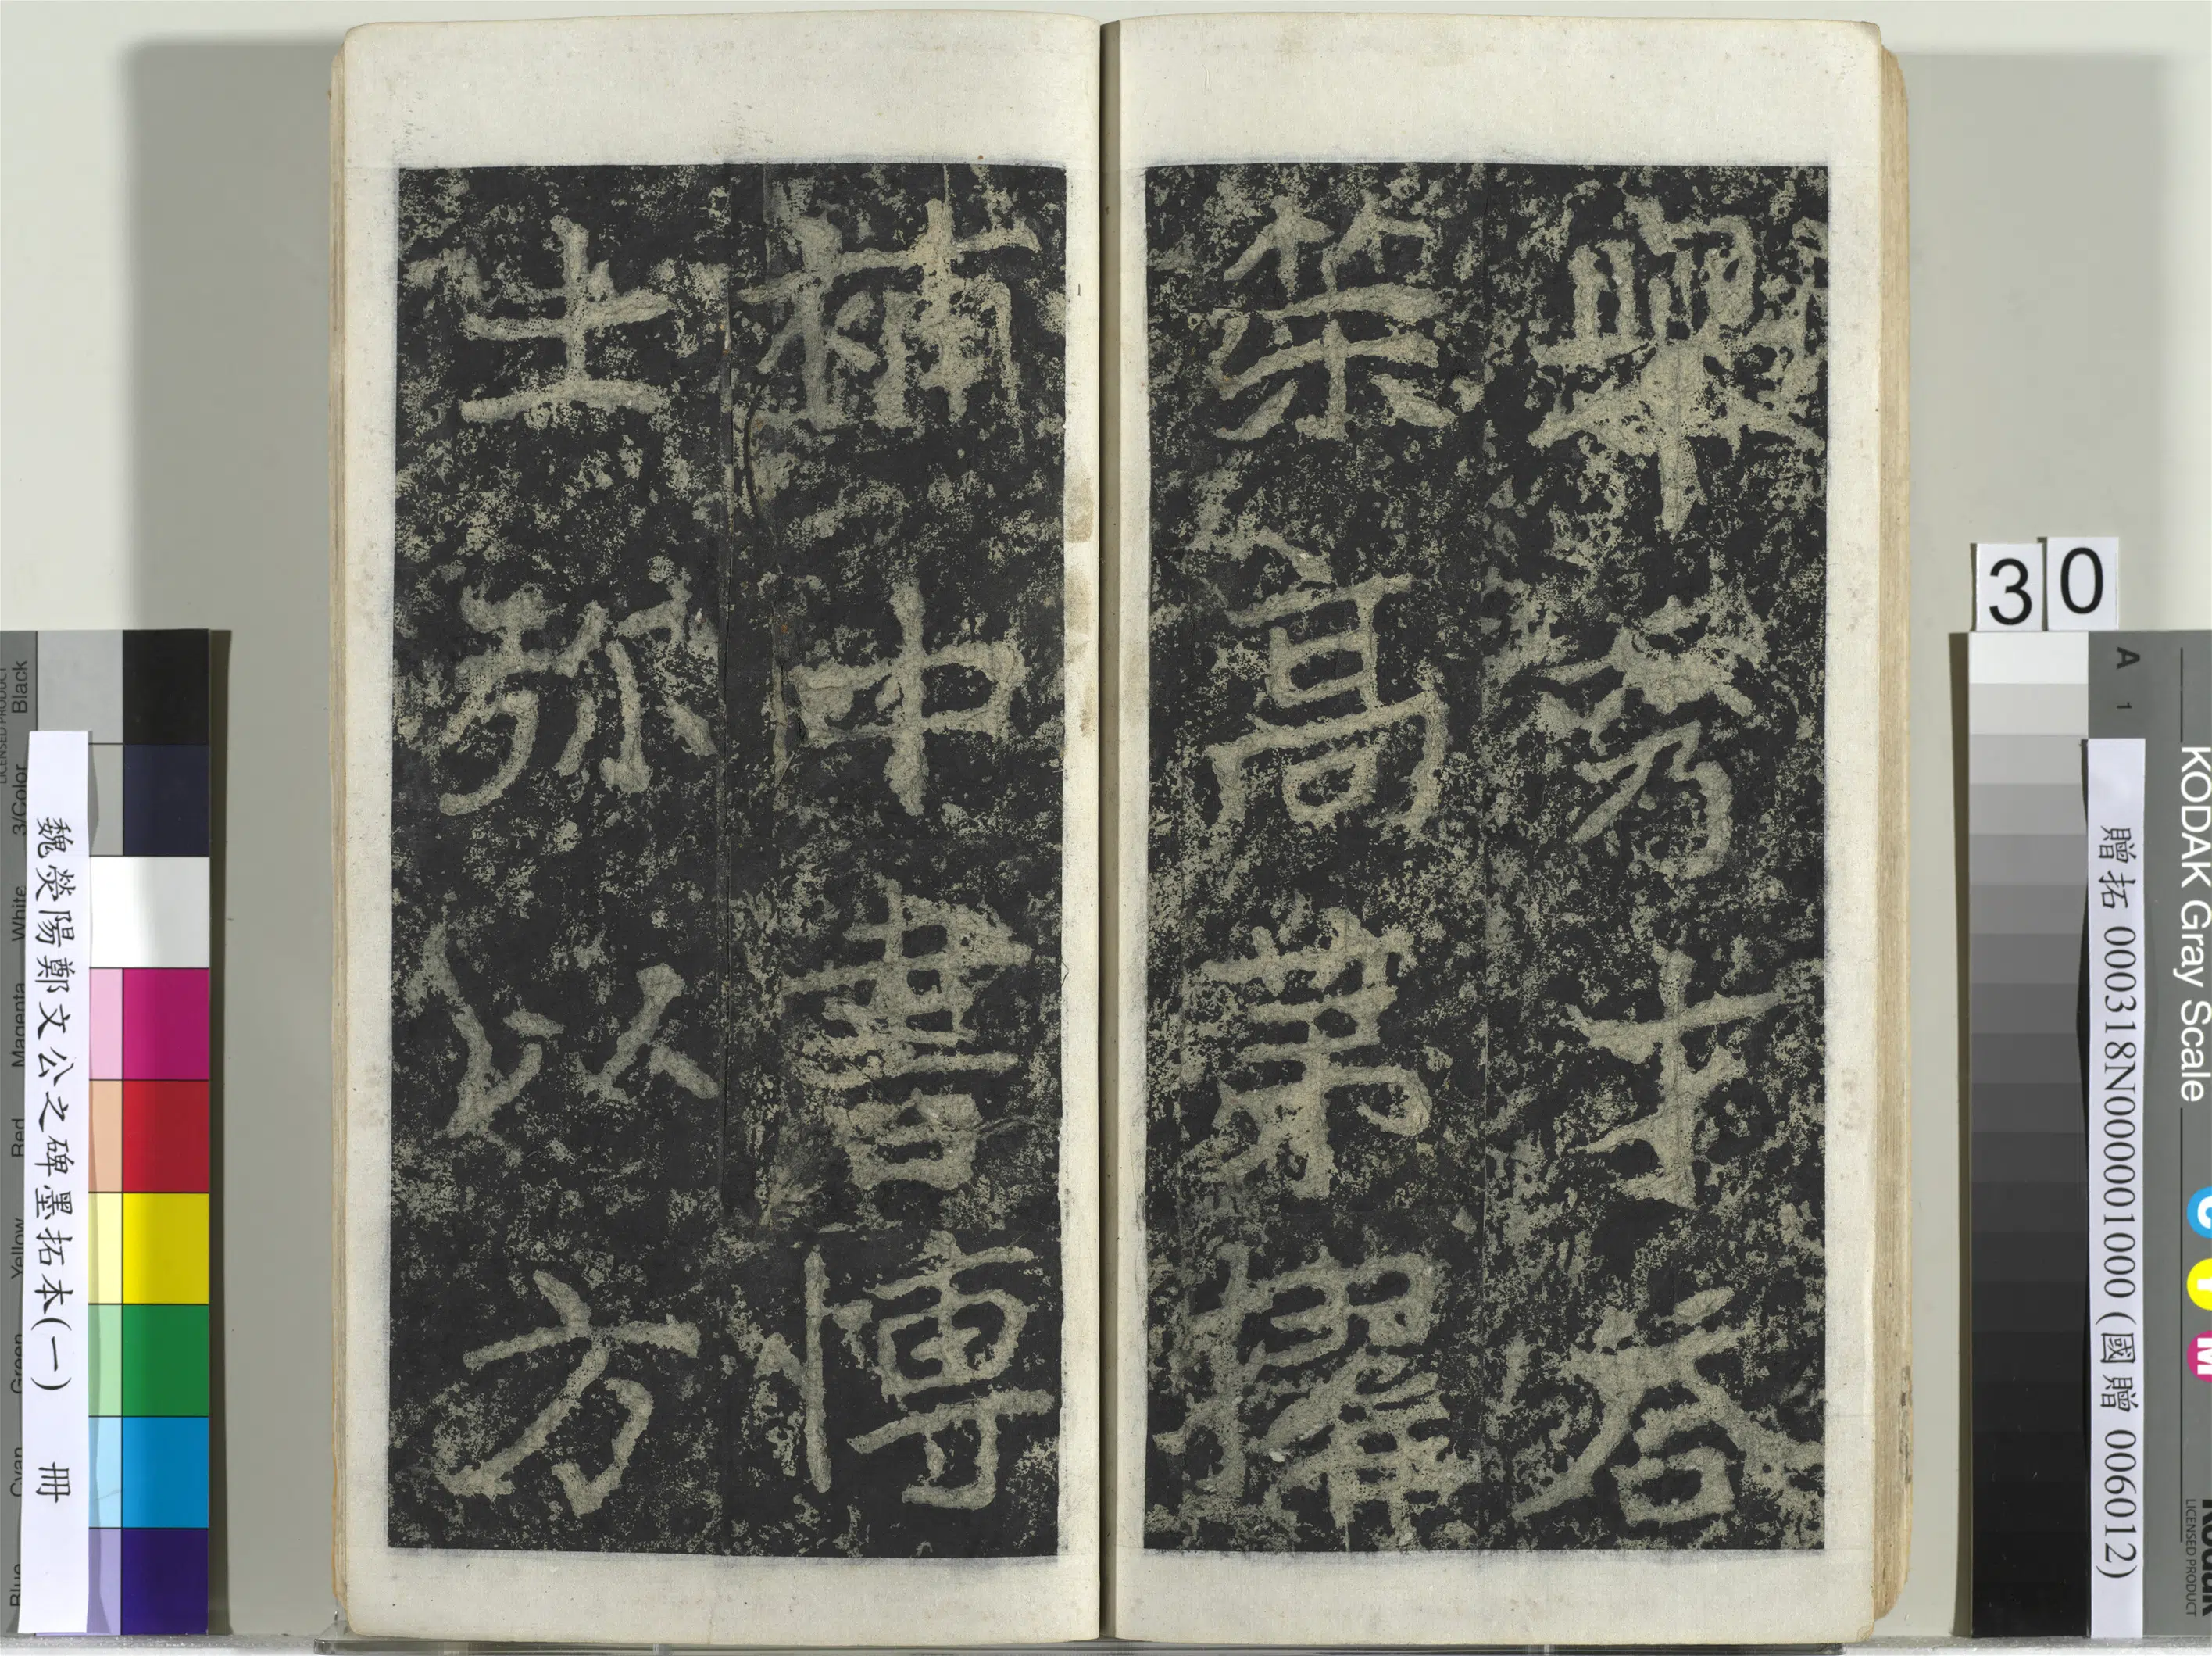 舉秀才荅
策高第擢
補中書博
士弥以方
30
A 1
KODAK Gray Scale
C Y M
Kodak
LICENSED PRODUCT
贈拓 000318N000001000 (國贈 006012)
魏熒陽鄭文公之碑墨拓本(一) 冊
LICENSED PRODUCT
Blue Cyan Green Yellow Red Magenta White 3/Color Black